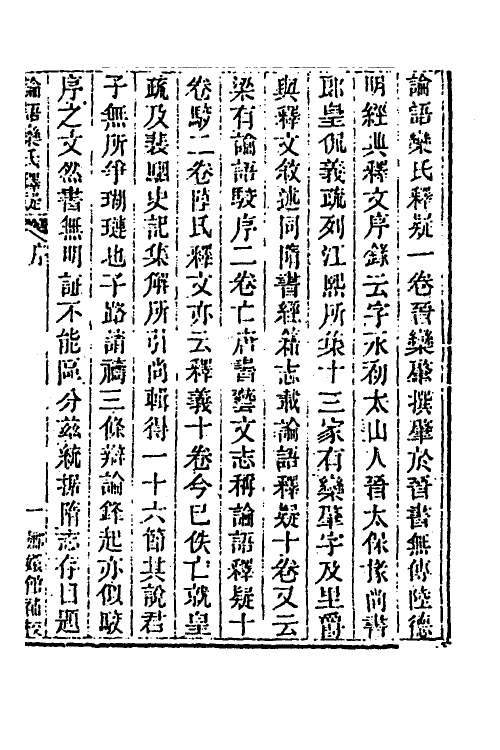 論語欒氏釋疑一卷晉欒肇撰肇於晉書無傳陸德
明經典釋文序錄云字永初太山人晉太保掾尚書
郎皇侃義疏列江熙所集十三家有欒肇字及里爵
與釋文敘述同隋書經籍志載論語釋疑十卷又云
梁有論語駮序二卷亡唐書藝文志稱論語釋疑十
卷駮二卷陸氏釋文亦云釋義十卷今已佚亡就皇
疏及裴駰史記集解所引尚輯得一十六節其說君
子無所爭瑚璉也子路請禱三條辯論鋒起亦似駮
序之文然書無明証不能區分茲統據隋志存目題
論語欒氏釋疑 序 一 嫏嬛館補校